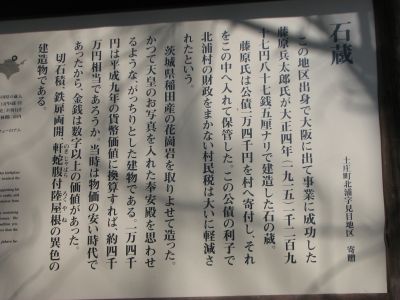 石蔵
土庄町北浦字見目地区 寄贈
この地区出身で大阪に出て事業に成功した
藤原兵太郎氏が大正四年(一九一五)二千二百九
十七円八十七銭五厘ナリで建造した石の蔵。
藤原氏は公債二万四千円を村へ寄付し、それ
をこの中へ入れて保管した。この公債の利子で
北浦村の財政をまかない村民税は大いに軽減さ
れたという。
茨城県稲田産の花崗岩を取りよせて造った。
かつて天皇のお写真を入れた奉安殿を思わせ
るような、がっちりとした建物である。二万四千
円は平成九年の貨幣価値に換算すれば、約四千
万円相当であろうか、当時は物価の安い時代で
あったから、金銭は数字以上の価値があった。
切石積、鉄扉両開、軒蛇腹付陸屋根の異色の
のきじゃばら ろくやね
建造物である。